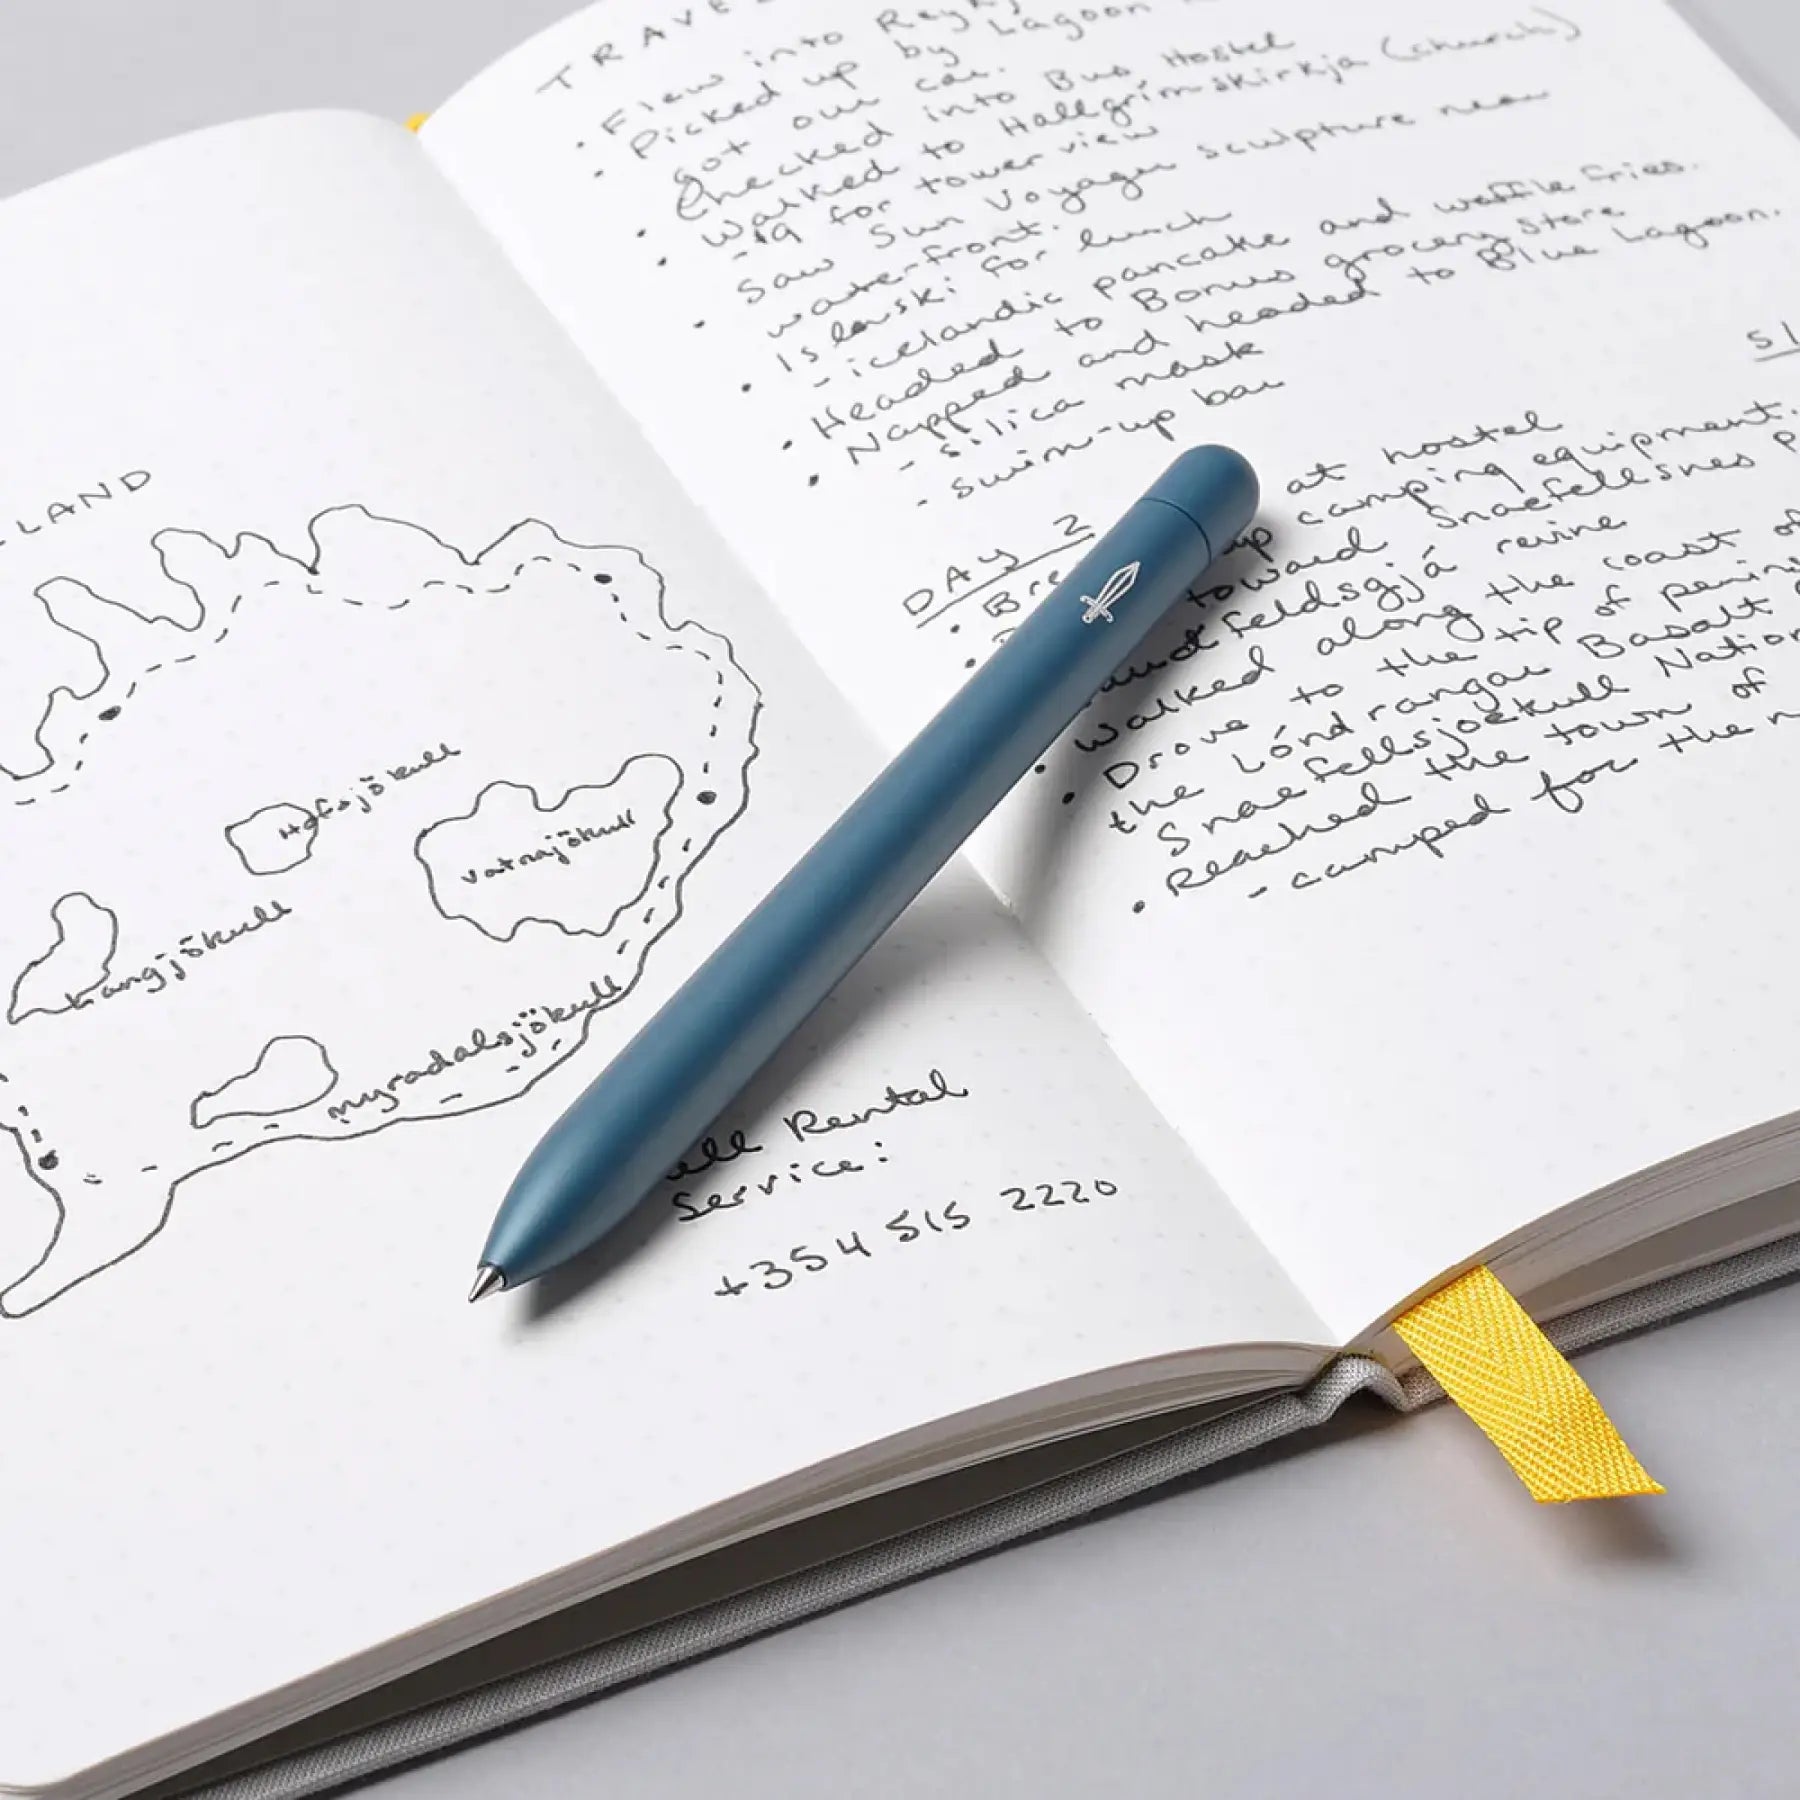 LAND
Hofsjökull
Vatnajökull
Langjökull
myradalsjökull
Rental
Service:
+354 515 2220
Flew into
Picked up by Lagoon
got our car.
Checked into Bus Hostel
Walked to Hallgrímskirkja (church)
for tower view
Saw Sun Voyager sculpture near
waterfront.
for lunch
- icelandic pancake and waffle fries.
Headed to Bonus grocery store
Napped and headed to Blue Lagoon.
- silica mask
- swim-up bar
DAY 2
at hostel
up camping equipment.
toward Snaefellsnes
revine
Walked along the coast of
Drove to the tip of
the Lóndrangar Basalt
Snaefellsjoekull
Reached the town of
- camped for the